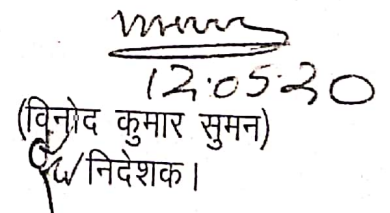 12.05.20
(विनोद कुमार सुमन)
निदेशक।